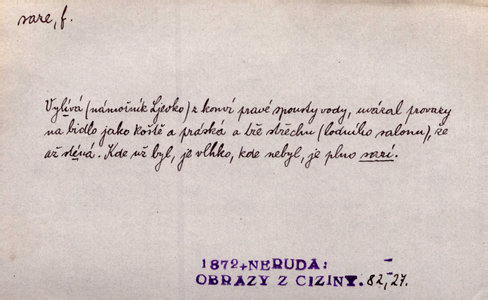 saze, f.
Vylívá (námořník Ljevko) z konví pravé spousty vody, uvázal provazy
na bidlo jako koště a práská a tře střechu (lodního salonu), že
až sténá. Kde už byl, je vlhko, kde nebyl, je plno sazí.
1872+NERUDA:
OBRAZY Z CIZINY. 82, 27.